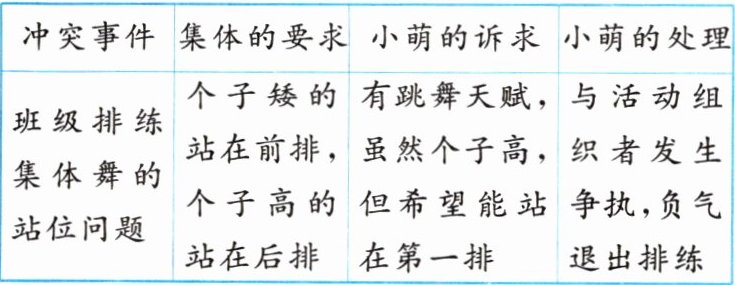 冲突事件 集体的要求 小萌的诉求 小萌的处理
班级排练
集体舞的
站位问题
个子矮的
站在前排，
个子高的
站在后排
有跳舞天赋，
虽然个子高，
但希望能站
在第一排
与活动组
织者发生
争执，负气
退出排练